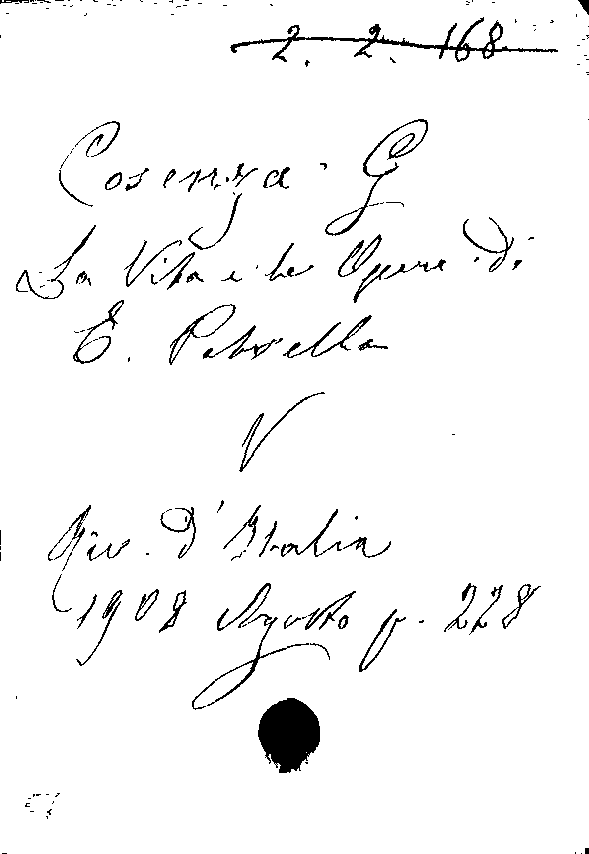 2. 2. 168
Cosenza - G
La Vita e le Opere di
E. Petrella
V
Riv. d'Italia
1908 Agosto p. 228